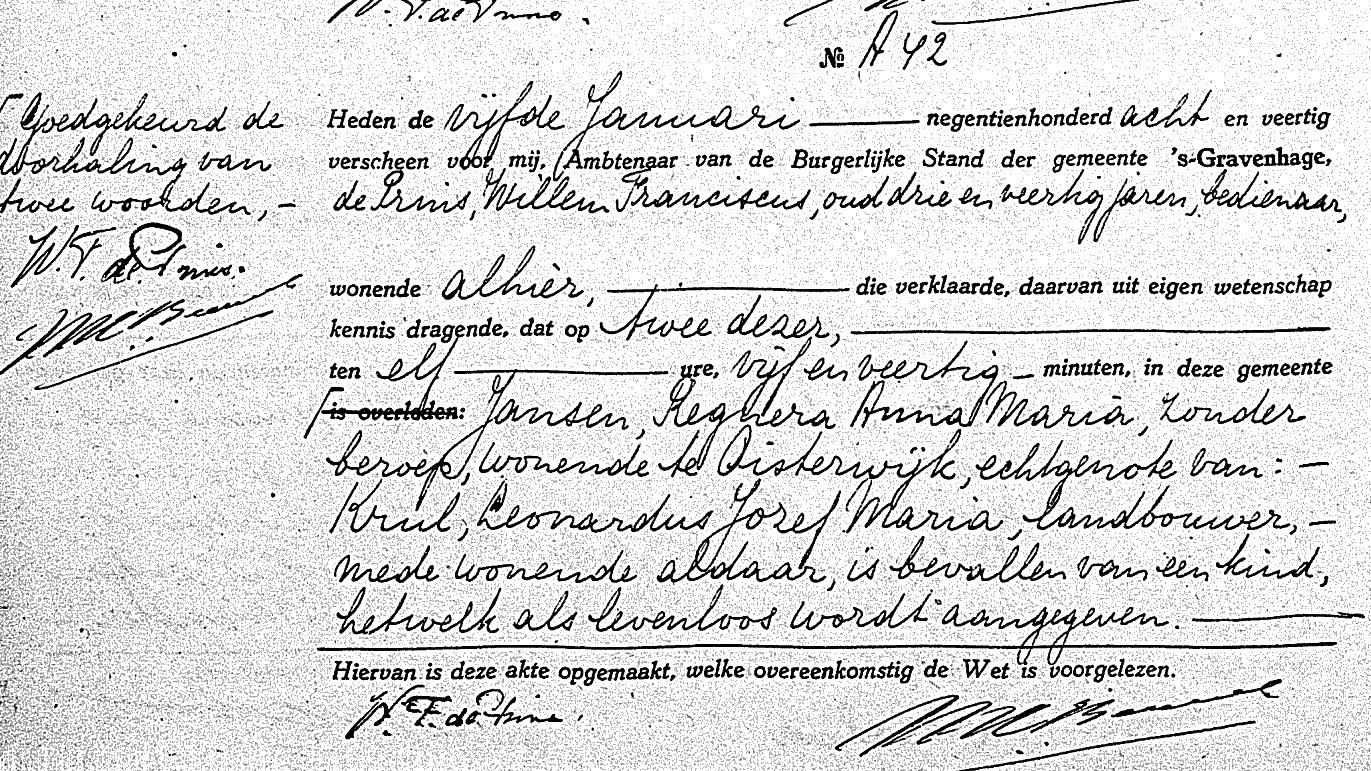 W. F. de Prins.
No A 42
Goedgekeurd de
doorhaling van
twee woorden, –
W. F. de Prins.
Heden de vijfde Januari negentienhonderd acht en veertig
verscheen voor mij, Ambtenaar van de Burgerlijke Stand der gemeente 's-Gravenhage,
de Prins, Willem Franciscus, oud drie en veertig jaren, bedienaar,
wonende alhier, die verklaarde, daarvan uit eigen wetenschap
kennis dragende, dat op twee dezer,
ten elf ure, vijf en veertig – minuten, in deze gemeente
is overleden: Jansen, Regnera Anna Maria, zonder
beroep, wonende te Oisterwijk, echtgenote van: –
Krul, Leonardus Jozef Maria, landbouwer, –
mede wonende aldaar, is bevallen van een kind,
hetwelk als levenloos wordt aangegeven.
Hiervan is deze akte opgemaakt, welke overeenkomstig de Wet is voorgelezen.
W. F. de Prins.